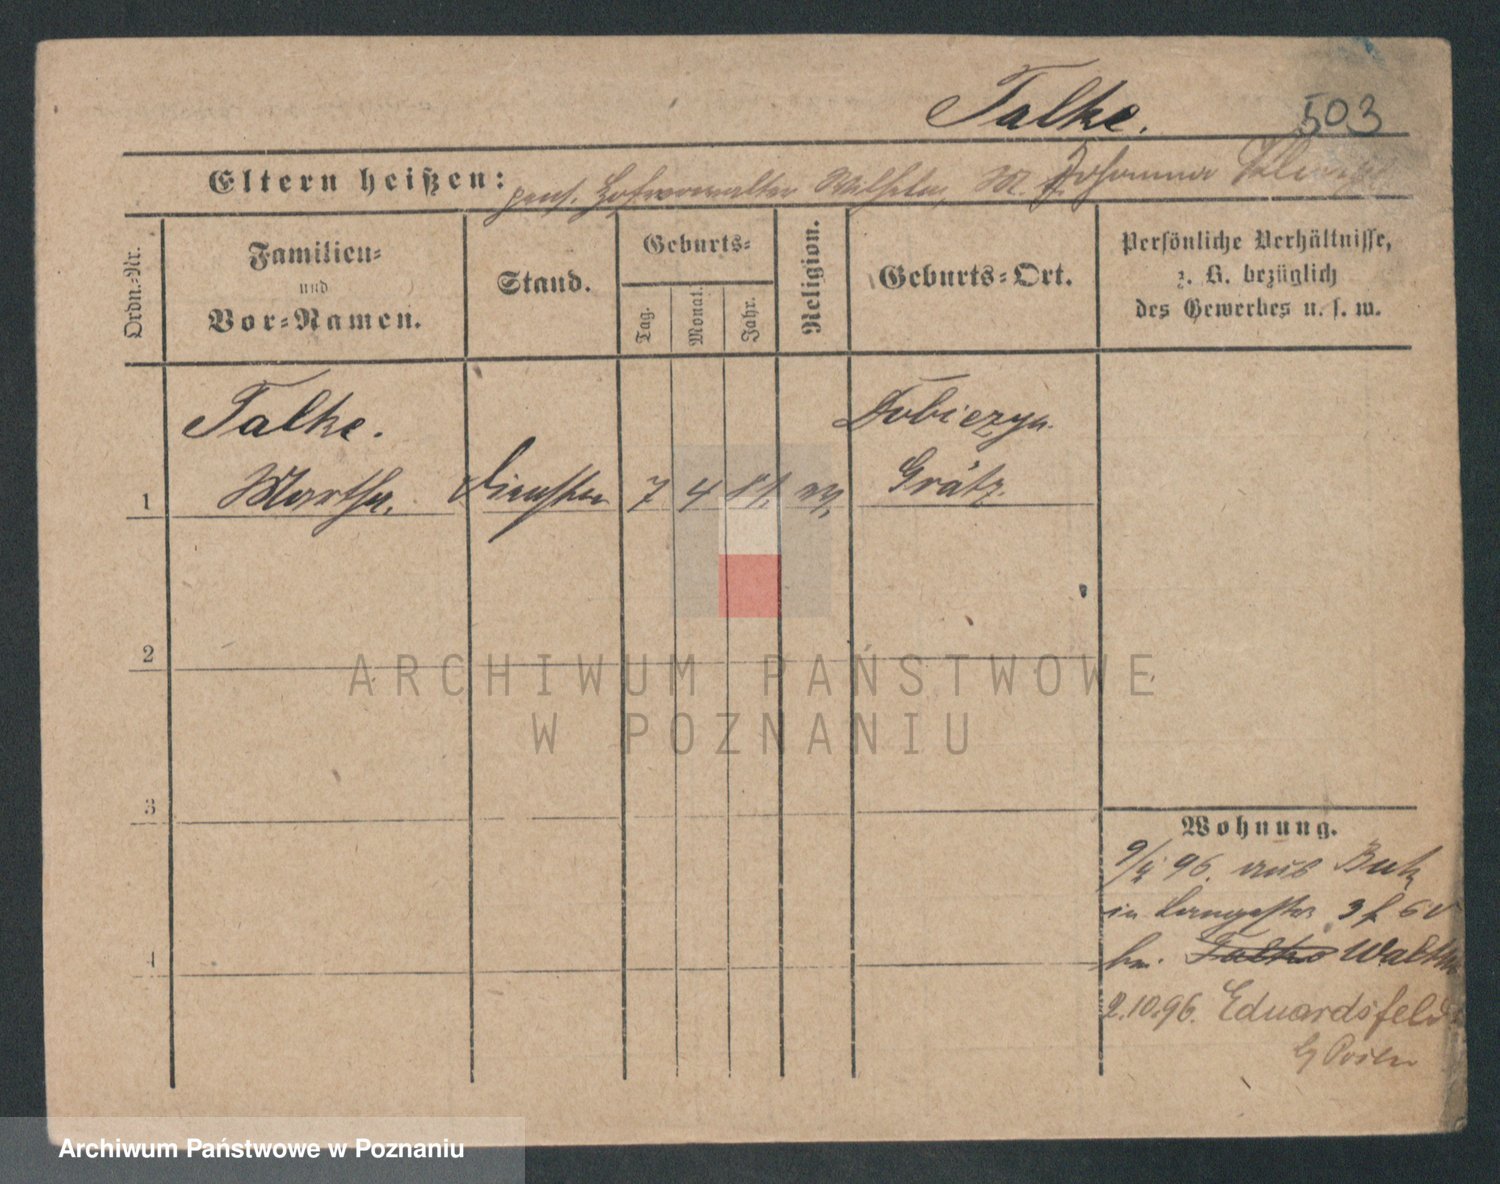 Talke.
503
Eltern heißen: Hofverwalter Wilhelm, M. Johanna
Ordn.-Nr.
Familien-
und
Vor-Namen.
Stand.
Geburts-
Tag.
Monat.
Jahr.
Religion.
Geburts-Ort.
Persönliche Verhältnisse,
z. B. bezüglich
des Gewerbes u. s. w.
Talke.
Martha.
1
7 4
Grätz.
2
3
4
Wohnung.
9/4 96. aus Buk
in Langestr
bei Talke Walth
2.10.96. Eduardsfeld
b/ Posen
ARCHIWUM PAŃSTWOWE
W POZNANIU
Archiwum Państwowe w Poznaniu